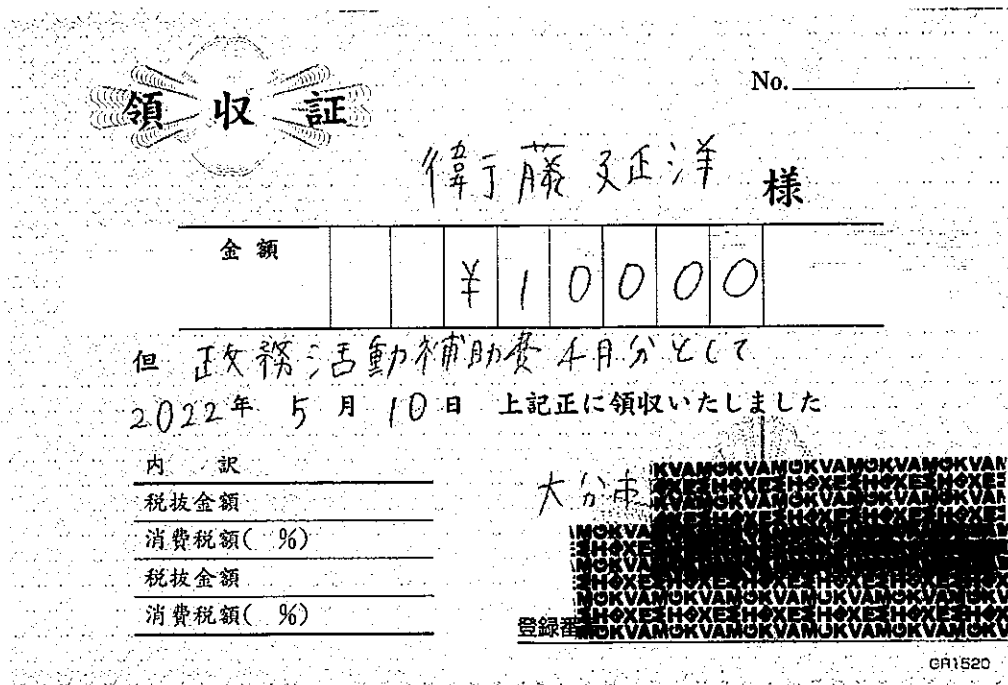 領収証
No.
衛藤延洋 様
金額 ¥10000
但 政務活動補助費4月分として
2022年 5月 10日 上記正に領収いたしました
内訳
税抜金額
消費税額( %)
税抜金額
消費税額( %)
大分市
登録番
GR1520